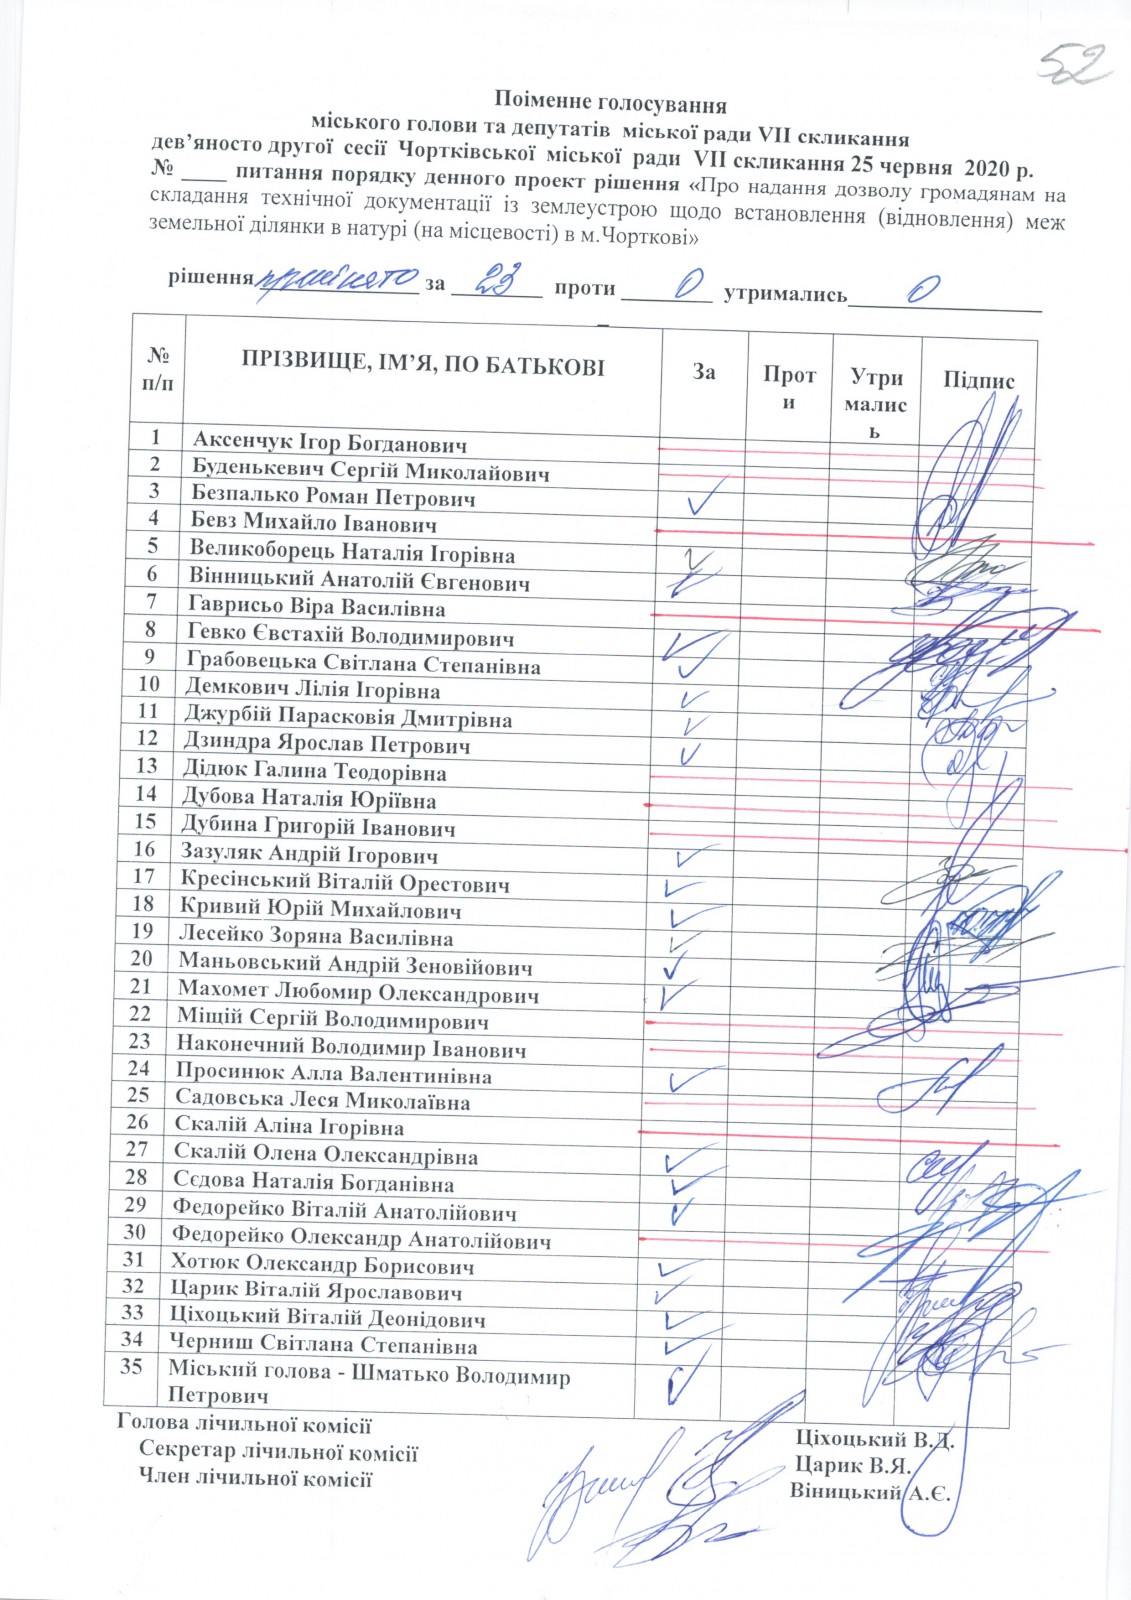 52
Поіменне голосування
міського голови та депутатів міської ради VII скликання
дев’яносто другої сесії Чортківської міської ради VII скликання 25 червня 2020 р.
№ ____ питання порядку денного проект рішення «Про надання дозволу громадянам на
складання технічної документації із землеустрою щодо встановлення (відновлення) меж
земельної ділянки в натурі (на місцевості) в м.Чорткові»
рішення прийнято за 23 проти 0 утримались 0
№ п/п ПРІЗВИЩЕ, ІМ’Я, ПО БАТЬКОВІ За Проти Утрималися Підпис
1 Аксенчук Ігор Богданович
2 Буденькевич Сергій Миколайович
3 Безпалько Роман Петрович
4 Бевз Михайло Іванович
5 Великоборець Наталія Ігорівна
6 Вінницький Анатолій Євгенович
7 Гаврисьо Віра Василівна
8 Гевко Євстахій Володимирович
9 Грабовецька Світлана Степанівна
10 Демкович Лілія Ігорівна
11 Джурбій Парасковія Дмитрівна
12 Дзиндра Ярослав Петрович
13 Дідюк Галина Теодорівна
14 Дубова Наталія Юріївна
15 Дубина Григорій Іванович
16 Зазуляк Андрій Ігорович
17 Кресінський Віталій Орестович
18 Кривий Юрій Михайлович
19 Лесейко Зоряна Василівна
20 Маньовський Андрій Зеновійович
21 Махомет Любомир Олександрович
22 Міщій Сергій Володимирович
23 Наконечний Володимир Іванович
24 Просинюк Алла Валентинівна
25 Садовська Леся Миколаївна
26 Скалій Аліна Ігорівна
27 Скалій Олена Олександрівна
28 Сєдова Наталія Богданівна
29 Федорейко Віталій Анатолійович
30 Федорейко Олександр Анатолійович
31 Хотюк Олександр Борисович
32 Царик Віталій Ярославович
33 Ціхоцький Віталій Деонідович
34 Черниш Світлана Степанівна
35 Міський голова - Шматько Володимир
Петрович
Голова лічильної комісії Ціхоцький В.Д.
Секретар лічильної комісії Царик В.Я.
Член лічильної комісії Віницький А.Є.